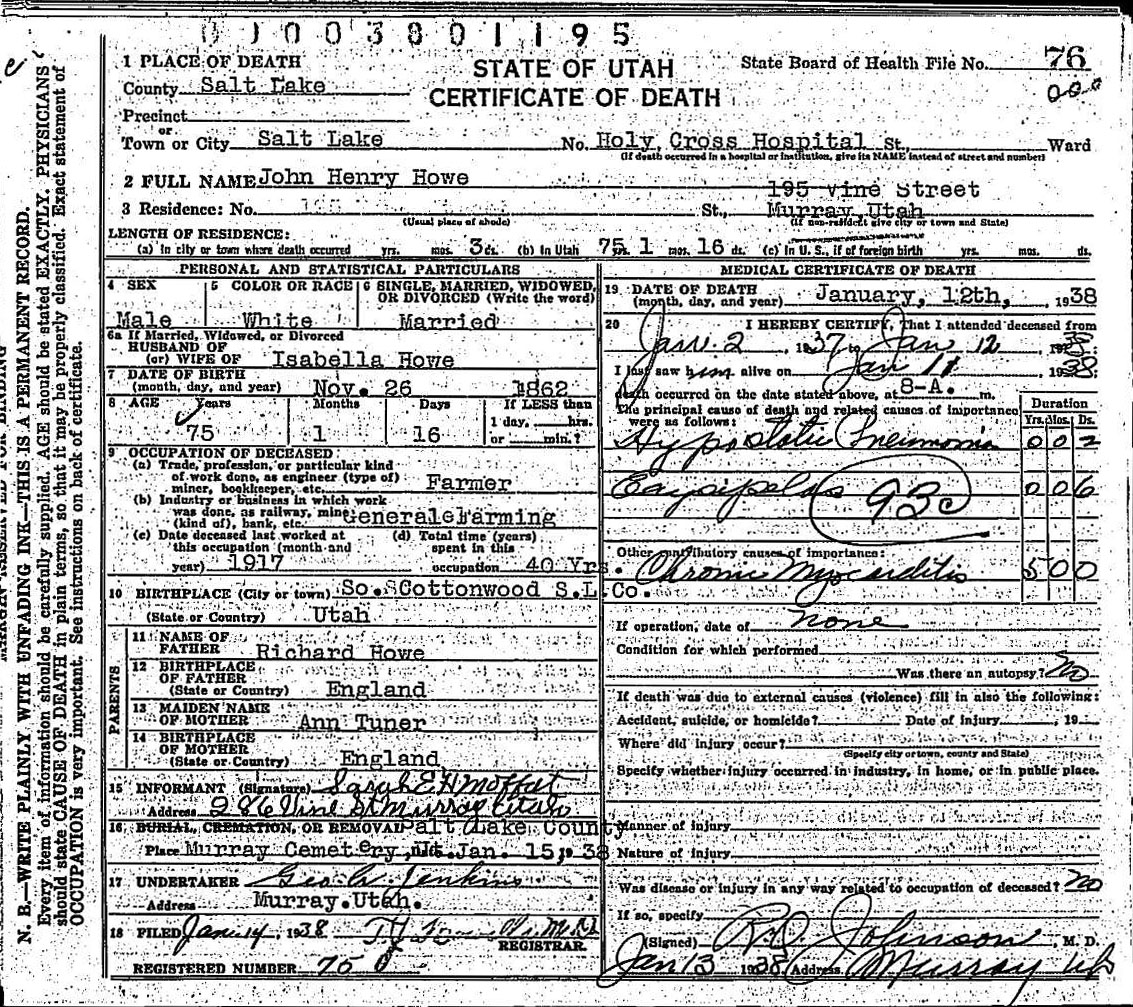 0100380119 5
1 PLACE OF DEATH
STATE OF UTAH
CERTIFICATE OF DEATH
State Board of Health File No. 76
County Salt Lake
Precinct
or
Town or City Salt Lake No. Holy Cross Hospital St., Ward
(If death occurred in a hospital or institution, give its NAME instead of street and number)
2 FULL NAME John Henry Howe
195 Vine Street
3 Residence: No. St., Murray, Utah
(Usual place of abode) (If non-resident give city or town and State)
LENGTH OF RESIDENCE:
(a) In city or town where death occurred yrs. mos. 3 ds. (b) In Utah 75 yrs. 1 mos. 16 ds. (c) In U. S., if of foreign birth yrs. mos. ds.
PERSONAL AND STATISTICAL PARTICULARS
4 SEX 5 COLOR OR RACE 6 SINGLE, MARRIED, WIDOWED, OR DIVORCED (Write the word)
Male White Married
6a If Married, Widowed, or Divorced
HUSBAND OF
(or) WIFE OF Isabella Howe
7 DATE OF BIRTH
(month, day, and year) Nov. 26 1862
8 AGE Years Months Days If LESS than
1 day, hrs.
75 1 16 or min.?
9 OCCUPATION OF DECEASED:
(a) Trade, profession, or particular kind
of work done, as engineer (type of)
miner, bookkeeper, etc. Farmer
(b) Industry or business in which work
was done, as railway, mine
(kind of), bank, etc. General Farming
(c) Date deceased last worked at
this occupation (month and
year) 1917
(d) Total time (years)
spent in this
occupation 40 Yrs.
10 BIRTHPLACE (City or town) So. Cottonwood S.L. Co.
(State or Country) Utah
PARENTS
11 NAME OF
FATHER Richard Howe
12 BIRTHPLACE
OF FATHER
(State or Country) England
13 MAIDEN NAME
OF MOTHER Ann Tuner
14 BIRTHPLACE
OF MOTHER
(State or Country) England
15 INFORMANT (Signature) Sarah E H Moffat
Address 286 Vine St Murray Utah
16 BURIAL, CREMATION, OR REMOVAL Salt Lake County
Place Murray Cemetery, Ut. Jan. 15, 1938
17 UNDERTAKER Geo A Jenkins
Address Murray. Utah.
18 FILED Jan 14, 1938
REGISTRAR.
REGISTERED NUMBER 75
MEDICAL CERTIFICATE OF DEATH
19 DATE OF DEATH
(month, day, and year) January, 12th, 1938
20 I HEREBY CERTIFY, That I attended deceased from
Jan. 2, 1937, to Jan 12 1938
I last saw him alive on Jan 11, 1938;
death occurred on the date stated above, at 8-A. m.
The principal cause of death and related causes of importance
were as follows:
Duration
Yrs. Mos. Ds.
Hypostatic Pneumonia 0 0 2
Erysipelas 93c 0 0 6
Other contributory causes of importance:
Chronic Myocarditis 5 0 0
If operation, date of none
Condition for which performed
Was there an autopsy? No
If death was due to external causes (violence) fill in also the following:
Accident, suicide, or homicide? Date of injury , 19
Where did injury occur?
(Specify city or town, county and State)
Specify whether injury occurred in industry, in home, or in public place.
Manner of injury
Nature of injury
Was disease or injury in any way related to occupation of deceased? No
If so, specify
(Signed) Johnson, M. D.
Jan 13 1938 Address Murray Ut
N. B.—WRITE PLAINLY WITH UNFADING INK—THIS IS A PERMANENT RECORD.
Every item of information should be carefully supplied. AGE should be stated EXACTLY. PHYSICIANS
should state CAUSE OF DEATH in plain terms, so that it may be properly classified. Exact statement of
OCCUPATION is very important. See instructions on back of certificate.